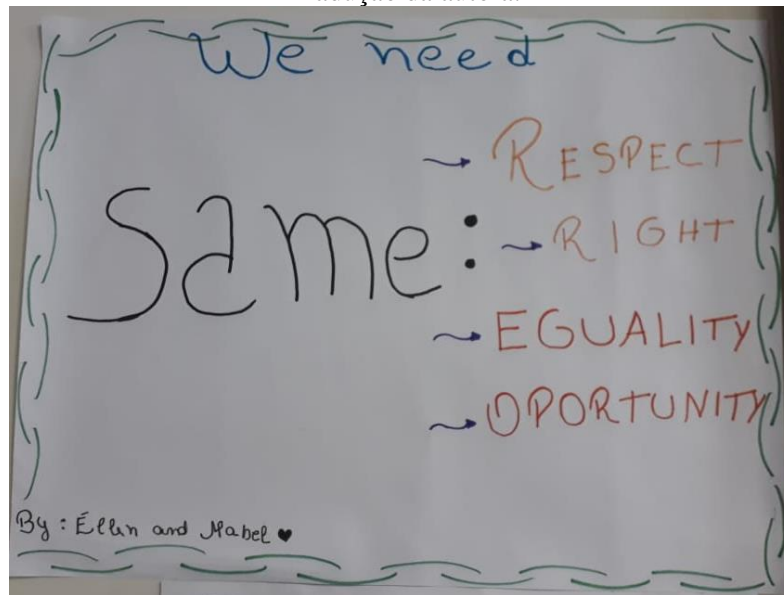 We need
Same:
→ RESPECT
→ RIGHT
→ EGUALITY
→ OPORTUNITY
By: Éllen and Mabel ♥